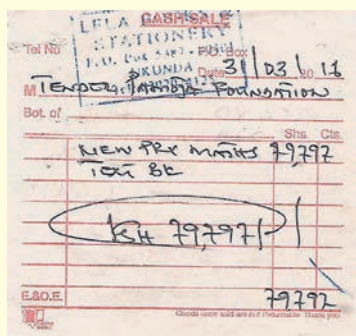 CASH SALE
LELA
STATIONERY
Tel No P.O. Box
UKUNDA
Date 31/03/2016
M TENDER FOUNDATION
Bot. of
Shs. Cts.
NEW PRY MATHS 79,797
KSH 79,797/-
E.&O.E. 79797
Goods once sold are not Returnable Thank you